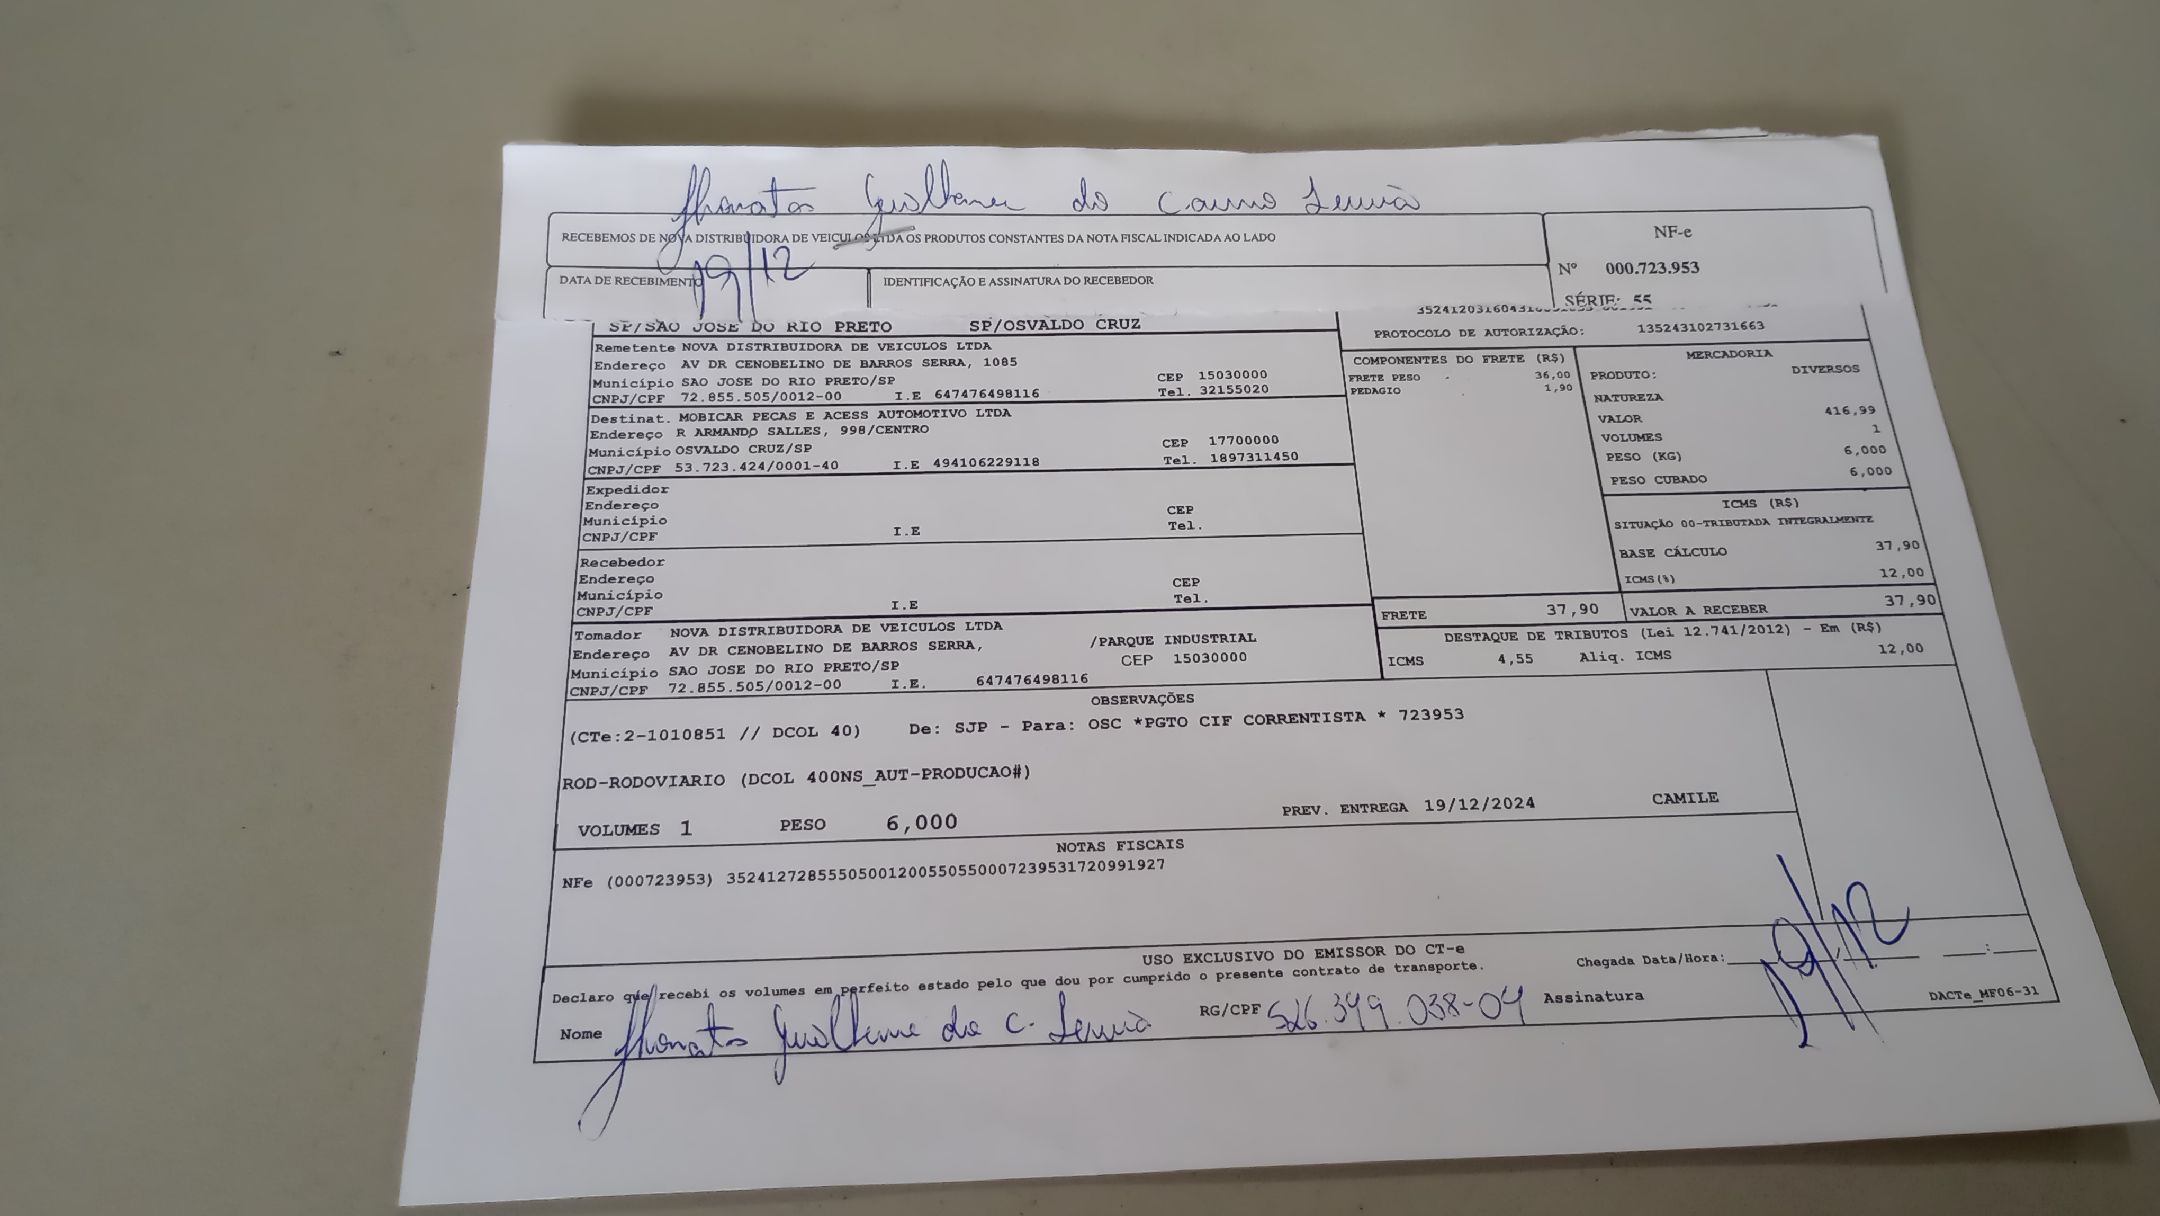 Jhonatas Guilherme do Carmo
RECEBEMOS DE NOVA DISTRIBUIDORA DE VEICULOS LTDA OS PRODUTOS CONSTANTES DA NOTA FISCAL INDICADA AO LADO
NF-e
Nº 000.723.953
SÉRIE: 55
DATA DE RECEBIMENTO 19/12
IDENTIFICAÇÃO E ASSINATURA DO RECEBEDOR
SP/SAO JOSE DO RIO PRETO SP/OSVALDO CRUZ
PROTOCOLO DE AUTORIZAÇÃO: 135243102731663
Remetente NOVA DISTRIBUIDORA DE VEICULOS LTDA
Endereço AV DR CENOBELINO DE BARROS SERRA, 1085
Município SAO JOSE DO RIO PRETO/SP CEP 15030000
CNPJ/CPF 72.855.505/0012-00 I.E 647476498116 Tel. 32155020
Destinat. MOBICAR PECAS E ACESS AUTOMOTIVO LTDA
Endereço R ARMANDO SALLES, 998/CENTRO
Município OSVALDO CRUZ/SP CEP 17700000
CNPJ/CPF 53.723.424/0001-40 I.E 494106229118 Tel. 1897311450
Expedidor
Endereço
Município CEP
CNPJ/CPF I.E Tel.
Recebedor
Endereço
Município CEP
CNPJ/CPF I.E Tel.
Tomador NOVA DISTRIBUIDORA DE VEICULOS LTDA
Endereço AV DR CENOBELINO DE BARROS SERRA, /PARQUE INDUSTRIAL
Município SAO JOSE DO RIO PRETO/SP CEP 15030000
CNPJ/CPF 72.855.505/0012-00 I.E. 647476498116
COMPONENTES DO FRETE (R$)
FRETE PESO - 36,00
PEDAGIO 1,90
MERCADORIA
PRODUTO: DIVERSOS
NATUREZA
VALOR 416,99
VOLUMES 1
PESO (KG) 6,000
PESO CUBADO 6,000
ICMS (R$)
SITUAÇÃO 00-TRIBUTADA INTEGRALMENTE
BASE CÁLCULO 37,90
ICMS(%) 12,00
FRETE 37,90 VALOR A RECEBER 37,90
DESTAQUE DE TRIBUTOS (Lei 12.741/2012) - Em (R$)
ICMS 4,55 Aliq. ICMS 12,00
OBSERVAÇÕES
(CTe:2-1010851 // DCOL 40) De: SJP - Para: OSC *PGTO CIF CORRENTISTA * 723953
ROD-RODOVIARIO (DCOL 400NS_AUT-PRODUCAO#)
VOLUMES 1 PESO 6,000 PREV. ENTREGA 19/12/2024 CAMILE
NOTAS FISCAIS
NFe (000723953) 35241272855505001200550550007239531720991927
USO EXCLUSIVO DO EMISSOR DO CT-e
Declaro que recebi os volumes em perfeito estado pelo que dou por cumprido o presente contrato de transporte.
Chegada Data/Hora: 19/12 :
Nome Jhonatas Guilherme do C. RG/CPF 526.399.038-04 Assinatura
DACTe_MF06-31